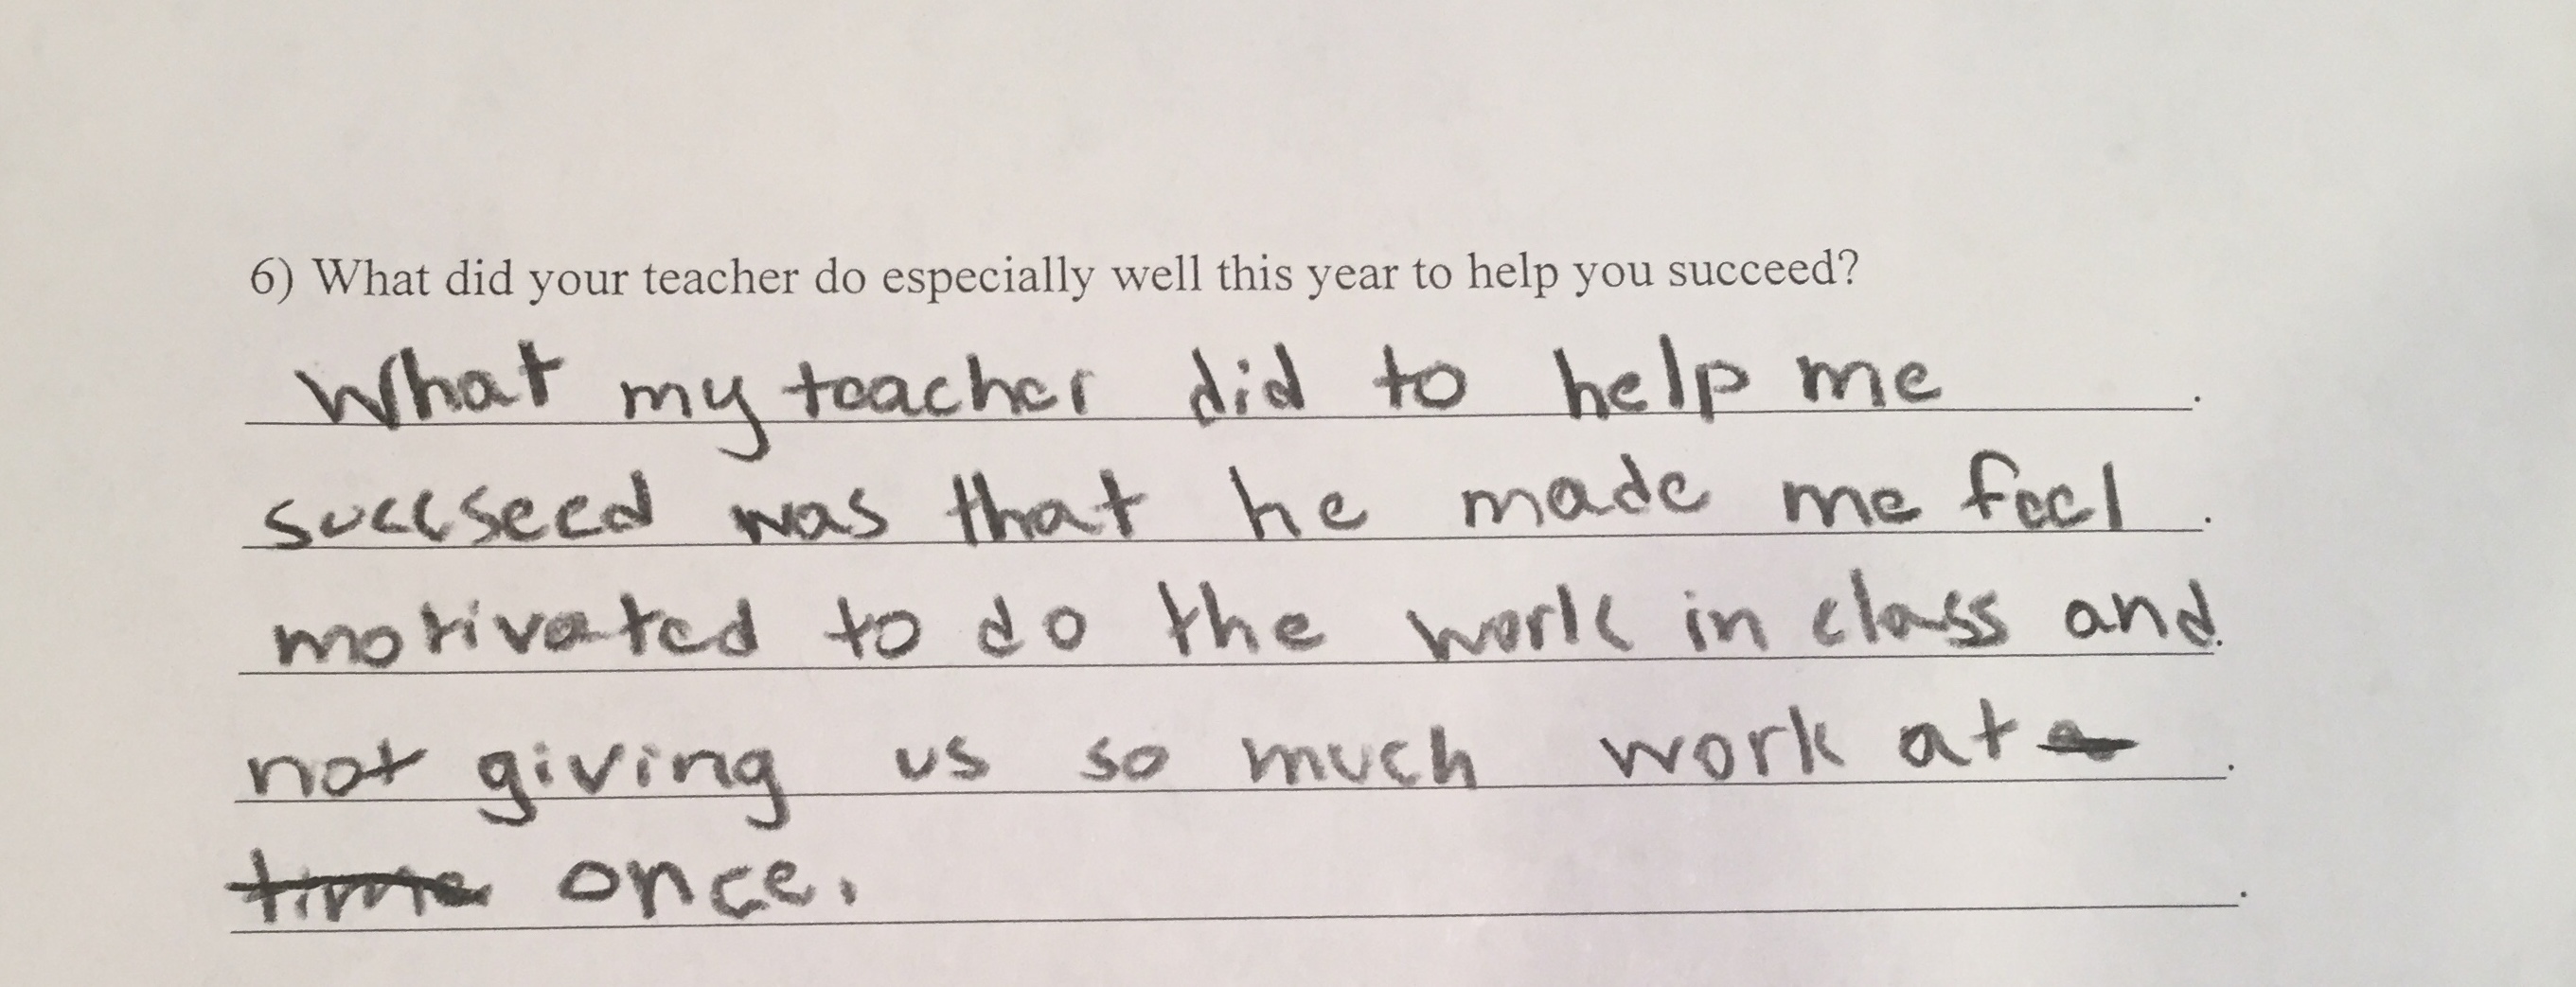 6) What did your teacher do especially well this year to help you succeed?
What my teacher did to help me .
succseed was that he made me feel .
motivated to do the work in class and.
not giving us so much work at a .
time once. .